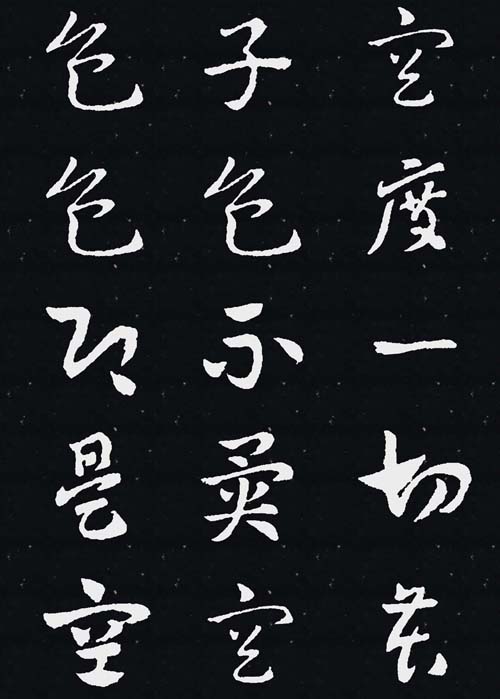 空度一切苦
子色不異空
色色即是空